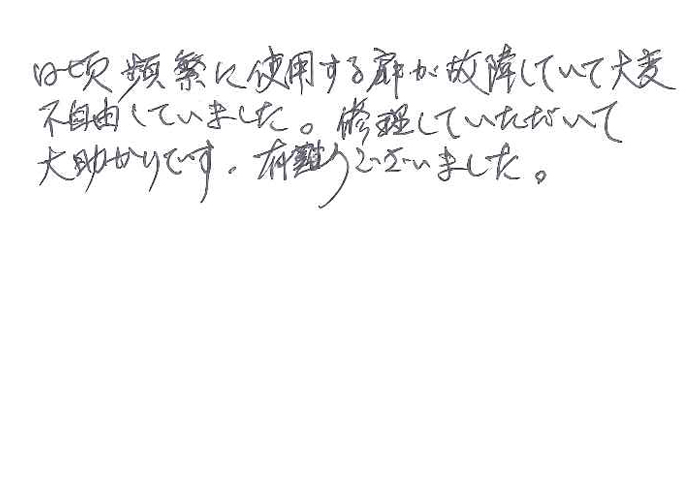 日頃頻繁に使用する扉が故障していて大変
不自由していました。修理していただいて
大助かりです。有難うございました。